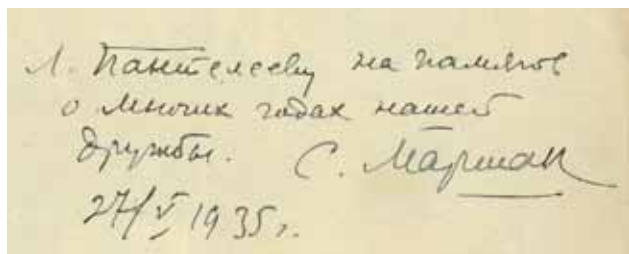 Л. Пантелееву на память
о многих годах нашей
дружбы. С. Маршак
27/V 1935 г.